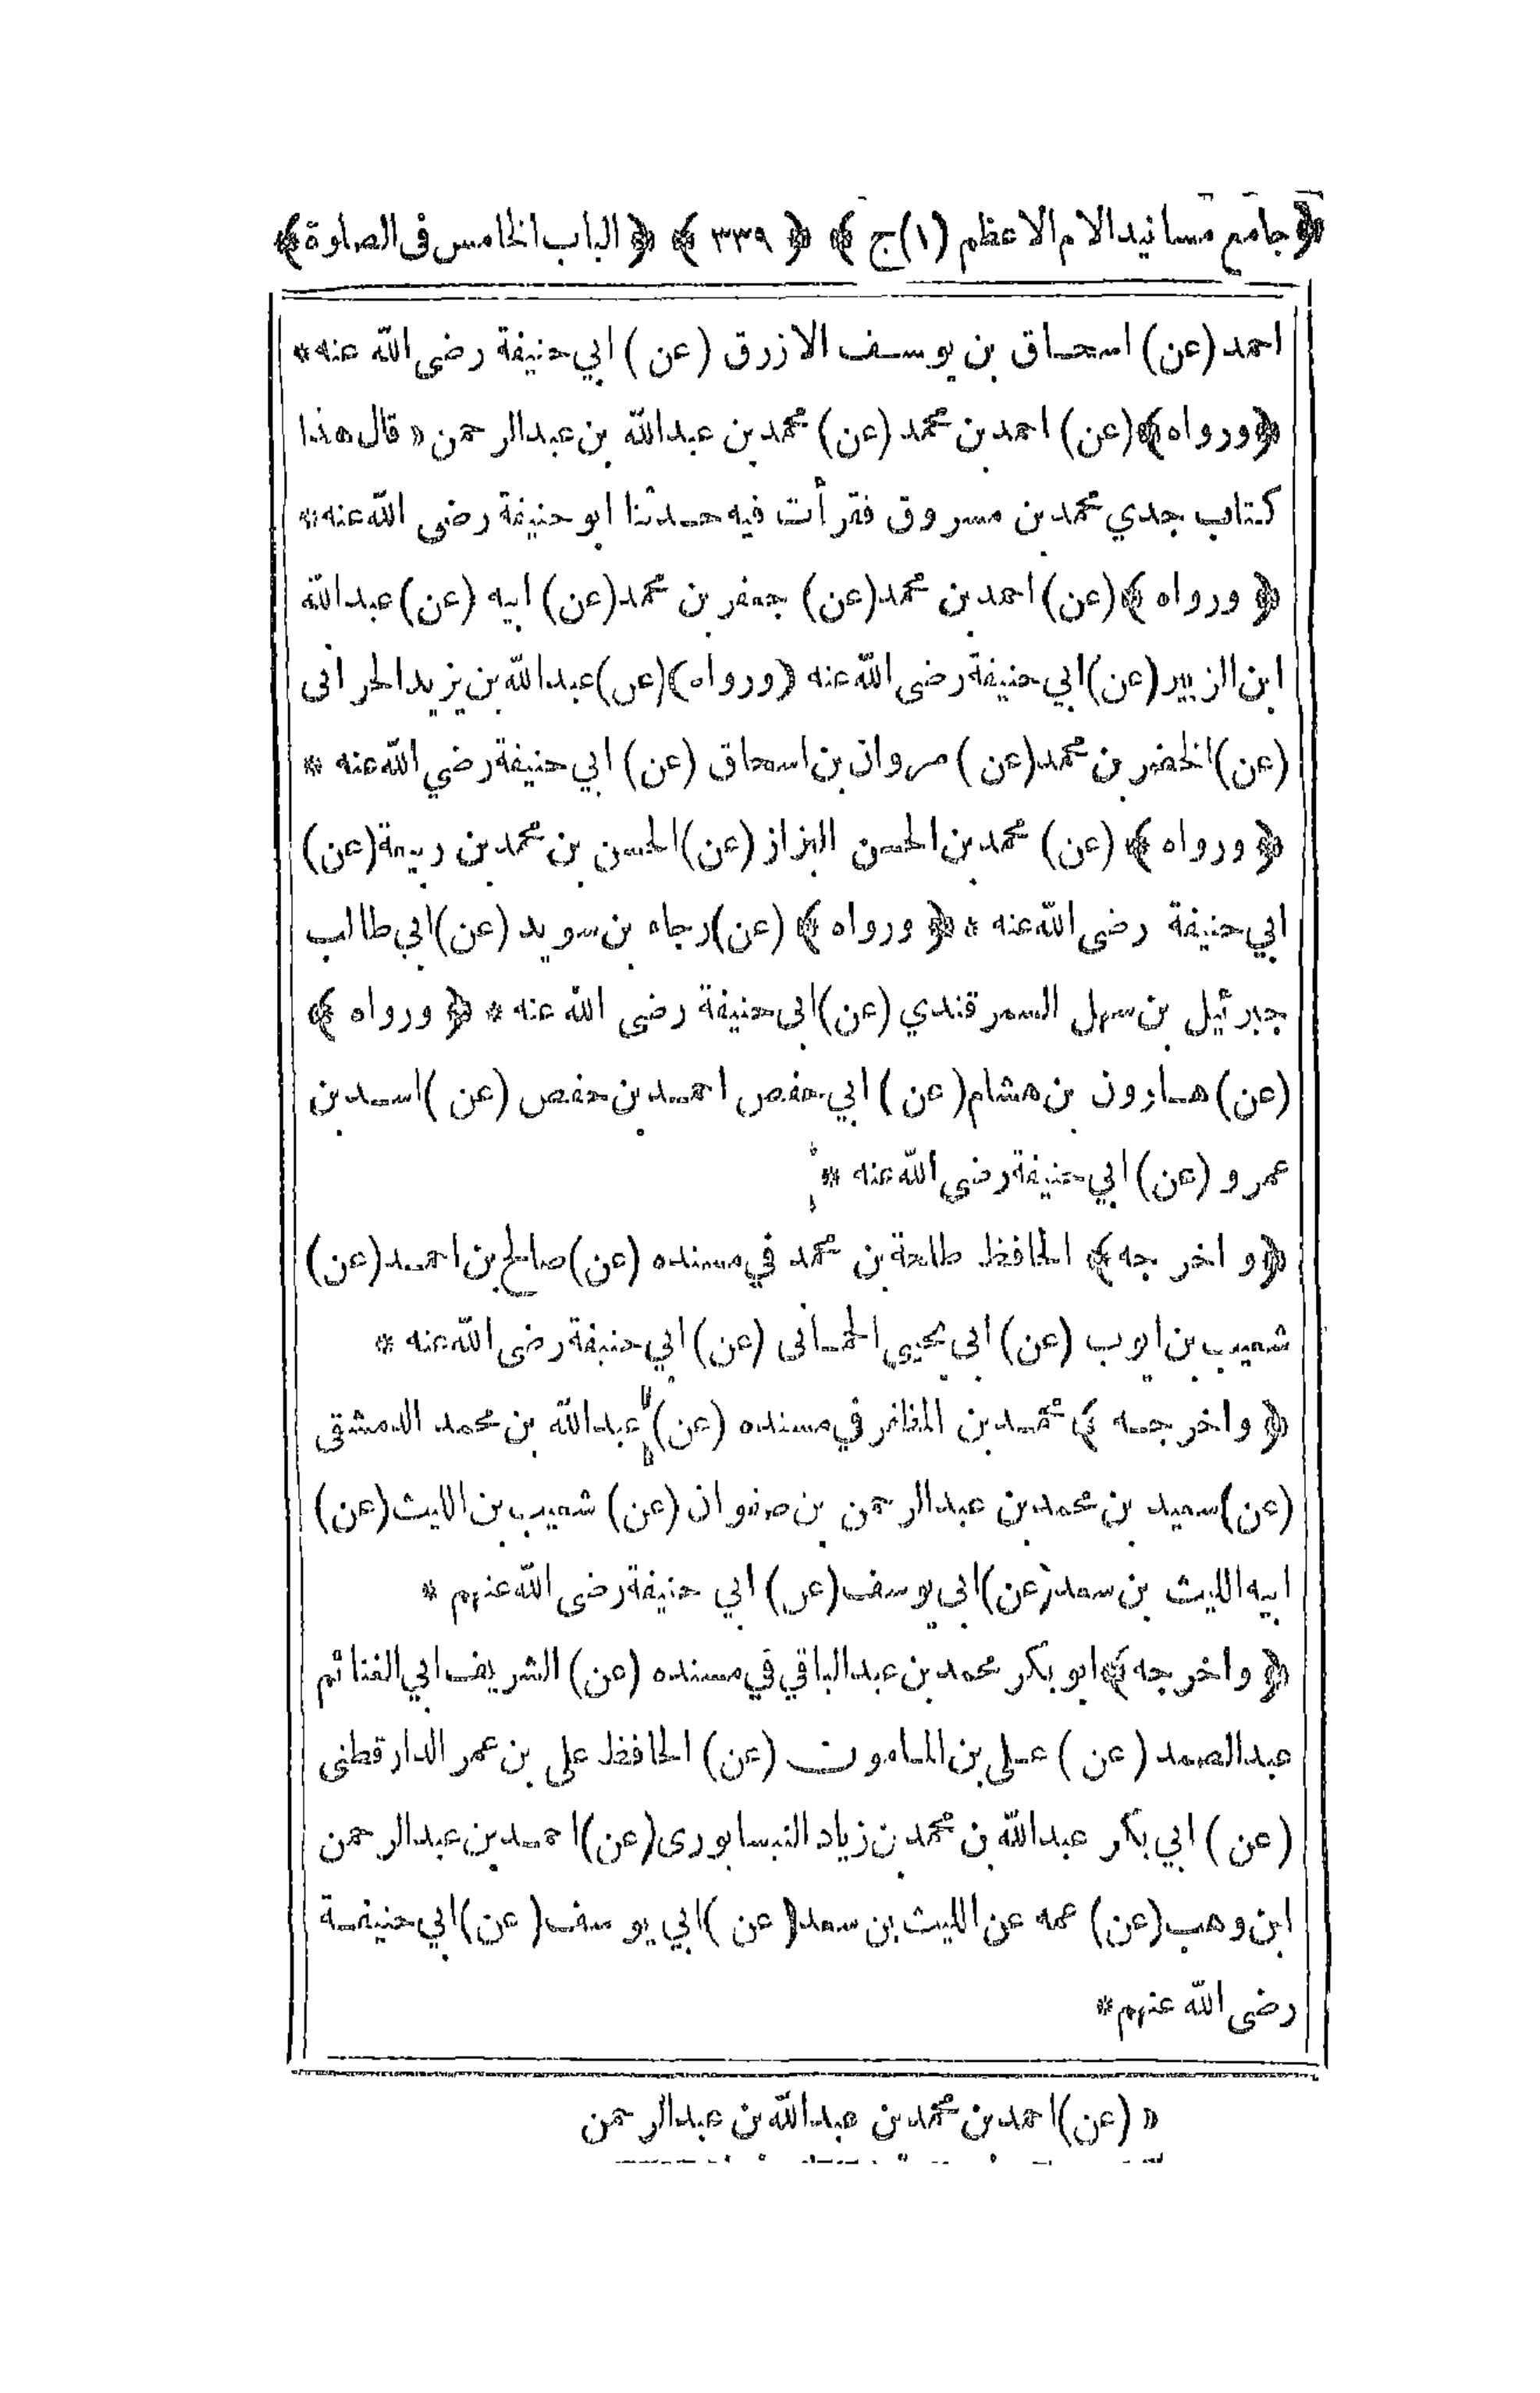 ﴿جامع مسانيد الامام الاعظم (١)ج﴾ ﴿٣٣٩﴾ ﴿الباب الخامس في الصلوة﴾
احمد (عن) اسحاق بن يوسف الازرق (عن) ابي حنيفة رضى الله عنه *
﴿ورواه﴾ (عن) احمد بن محمد (عن) محمد بن عبدالله بن عبدالرحمن « قال هذا
كتاب جدي محمد بن مسروق فقرأت فيه حدثنا ابو حنيفة رضى الله عنه *
﴿ورواه﴾ (عن) احمد بن محمد (عن) جعفر بن محمد (عن) ابيه (عن) عبدالله
ابن الزبير (عن) ابي حنيفة رضى الله عنه (ورواه) (عن) عبدالله بن يزيد الحرانى
(عن) الخضر بن محمد (عن) مروان بن اسحاق (عن) ابي حنيفة رضي الله عنه *
﴿ورواه﴾ (عن) محمد بن الحسن البزاز (عن) الحسن بن محمد بن ربيعة (عن)
ابي حنيفة رضى الله عنه * ﴿ورواه﴾ (عن) رجاء بن سويد (عن) ابي طالب
جبرئيل بن سهل السمرقندي (عن) ابى حنيفة رضى الله عنه * ﴿ورواه﴾
(عن) هارون بن هشام (عن) ابي حفص احمد بن حفص (عن) اسد بن
عمرو (عن) ابي حنيفة رضى الله عنه *
﴿واخرجه﴾ الحافظ طلحة بن محمد في مسنده (عن) صالح بن احمد (عن)
شعيب بن ايوب (عن) ابى يحيى الحمانى (عن) ابي حنيفة رضى الله عنه *
﴿واخرجه﴾ محمد بن المظفر في مسنده (عن) عبدالله بن محمد الدمشقى
(عن) سعيد بن محمد بن عبدالرحمن بن صفوان (عن) شعيب بن الليث (عن)
ابيه الليث بن سعد (عن) ابى يوسف (عن) ابي حنيفة رضى الله عنهم *
﴿واخرجه﴾ ابو بكر محمد بن عبدالباقي في مسنده (عن) الشريف ابي الغنائم
عبدالصمد (عن) على بن المامون (عن) الحافظ على بن عمر الدارقطنى
(عن) ابي بكر عبدالله بن محمد بن زياد النيسابورى (عن) احمد بن عبدالرحمن
ابن وهب (عن) عمه عن الليث بن سعد (عن) ابي يوسف (عن) ابي حنيفة
رضى الله عنهم *
« (عن) احمد بن محمد بن عبدالله بن عبدالرحمن